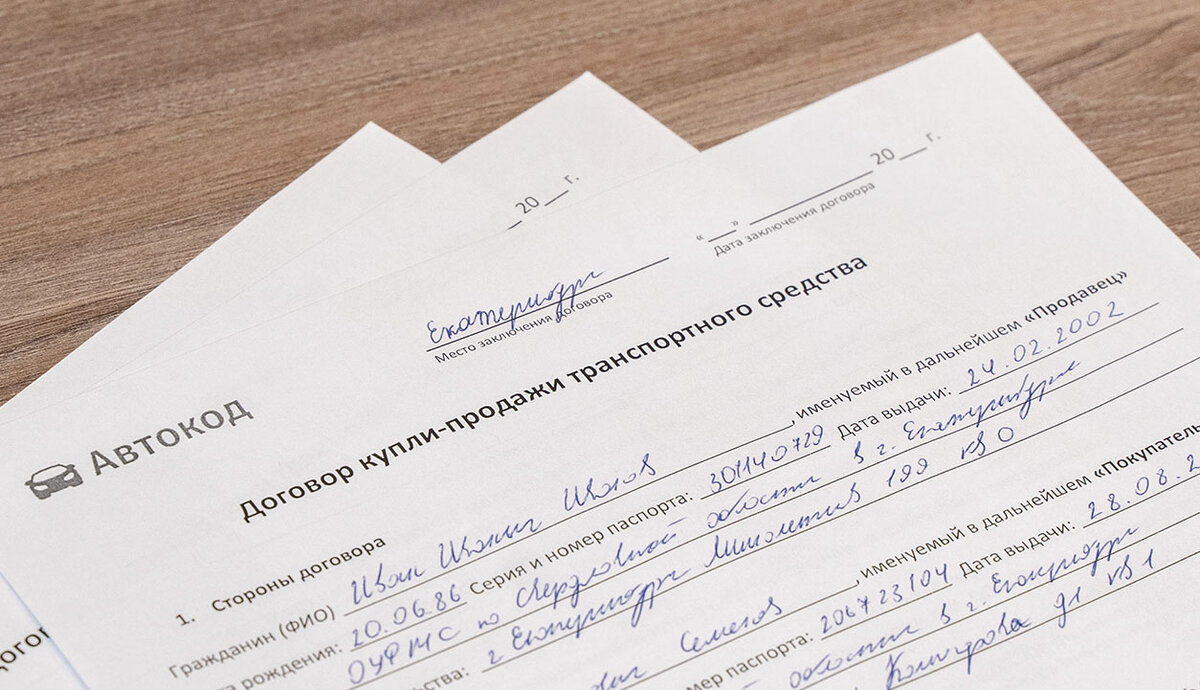 20__ г.
«__» ________ 20__ г.
Дата заключения договора
Екатеринбург
Место заключения договора
АВТОКОД
Договор купли-продажи транспортного средства
1. Стороны договора
Гражданин (ФИО) Иван Иванович Иванов, именуемый в дальнейшем «Продавец»
рождения: 20.06.86 Серия и номер паспорта: 301140729 Дата выдачи: 24.02.2002
ОУФМС по Свердловской области в г. Екатеринбурге
г. Екатеринбург 199 кв 0
Семенов, именуемый в дальнейшем «Покупатель
паспорта: 206723104 Дата выдачи: 28.08.2
области в г. Екатеринбург
д1 кв 1